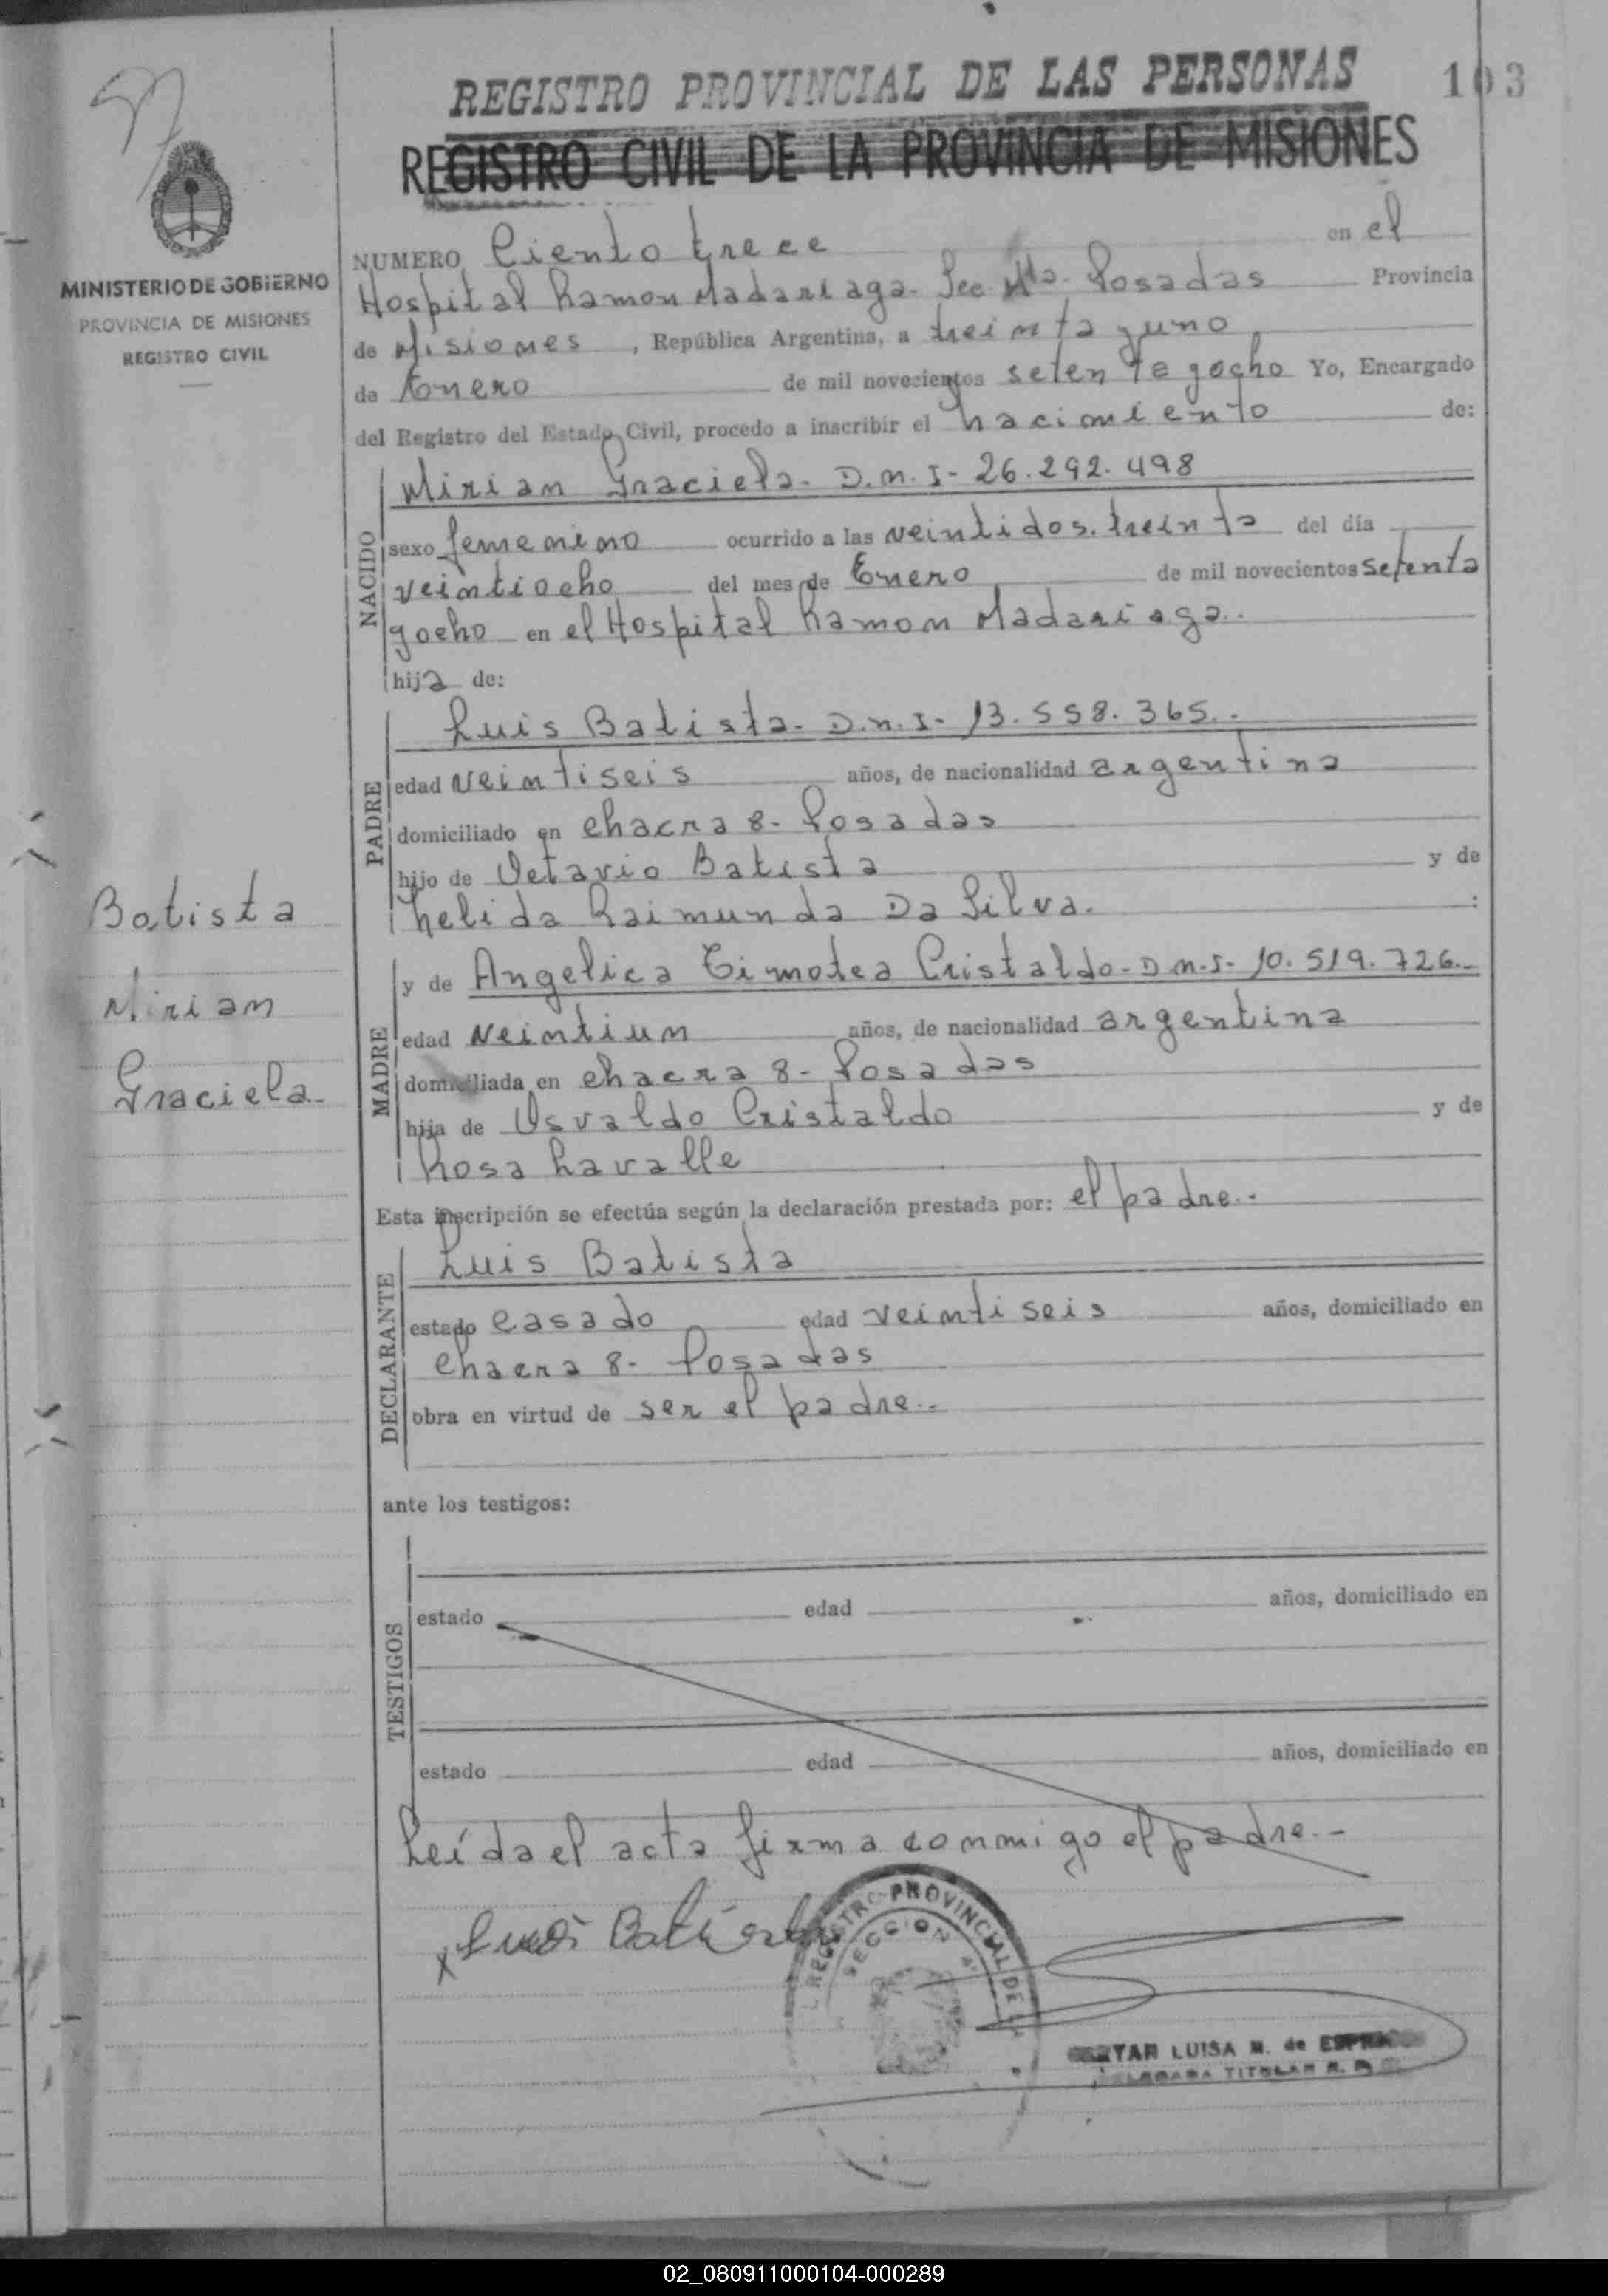 REGISTRO PROVINCIAL DE LAS PERSONAS 103
REGISTRO CIVIL DE LA PROVINCIA DE MISIONES
MINISTERIO DE GOBIERNO
PROVINCIA DE MISIONES
REGISTRO CIVIL
NUMERO Ciento trece en el
Hospital Ramon Madariaga. Sec. 4ta. Posadas Provincia
de Misiones, República Argentina, a treinta y uno
de Enero de mil novecientos setenta y ocho Yo, Encargado
del Registro del Estado Civil, procedo a inscribir el nacimiento de:
NACIDO
Mirian Graciela. D.N.I- 26.292.498
sexo femenino ocurrido a las veintidos. treinta del día
veintiocho del mes de Enero de mil novecientos setenta
y ocho en el Hospital Ramon Madariaga.
hija de:
PADRE
Luis Batista. D.N.I- 13.558.365.
edad veintiseis años, de nacionalidad argentina
domiciliado en chacra 8- Posadas
hijo de Octavio Batista y de
Nelida Raimunda Da Silva. :
Batista
Mirian
Graciela.
MADRE
y de Angelica Timotea Cristaldo- D.N.I- 10.519.726.
edad veintiun años, de nacionalidad argentina
domiciliada en chacra 8- Posadas
hija de Osvaldo Cristaldo y de
Rosa Lavalle
Esta inscripción se efectúa según la declaración prestada por: el padre.-
DECLARANTE
Luis Batista
estado casado edad veintiseis años, domiciliado en
chacra 8- Posadas
obra en virtud de ser el padre.-
ante los testigos:
TESTIGOS
estado edad años, domiciliado en
estado edad años, domiciliado en
Leída el acta firma conmigo el padre.-
x Luis Batista
REGISTRO PROVINCIAL DE
SECCION 4
LUISA M. de
TITULAR R. P.
02_080911000104-000289